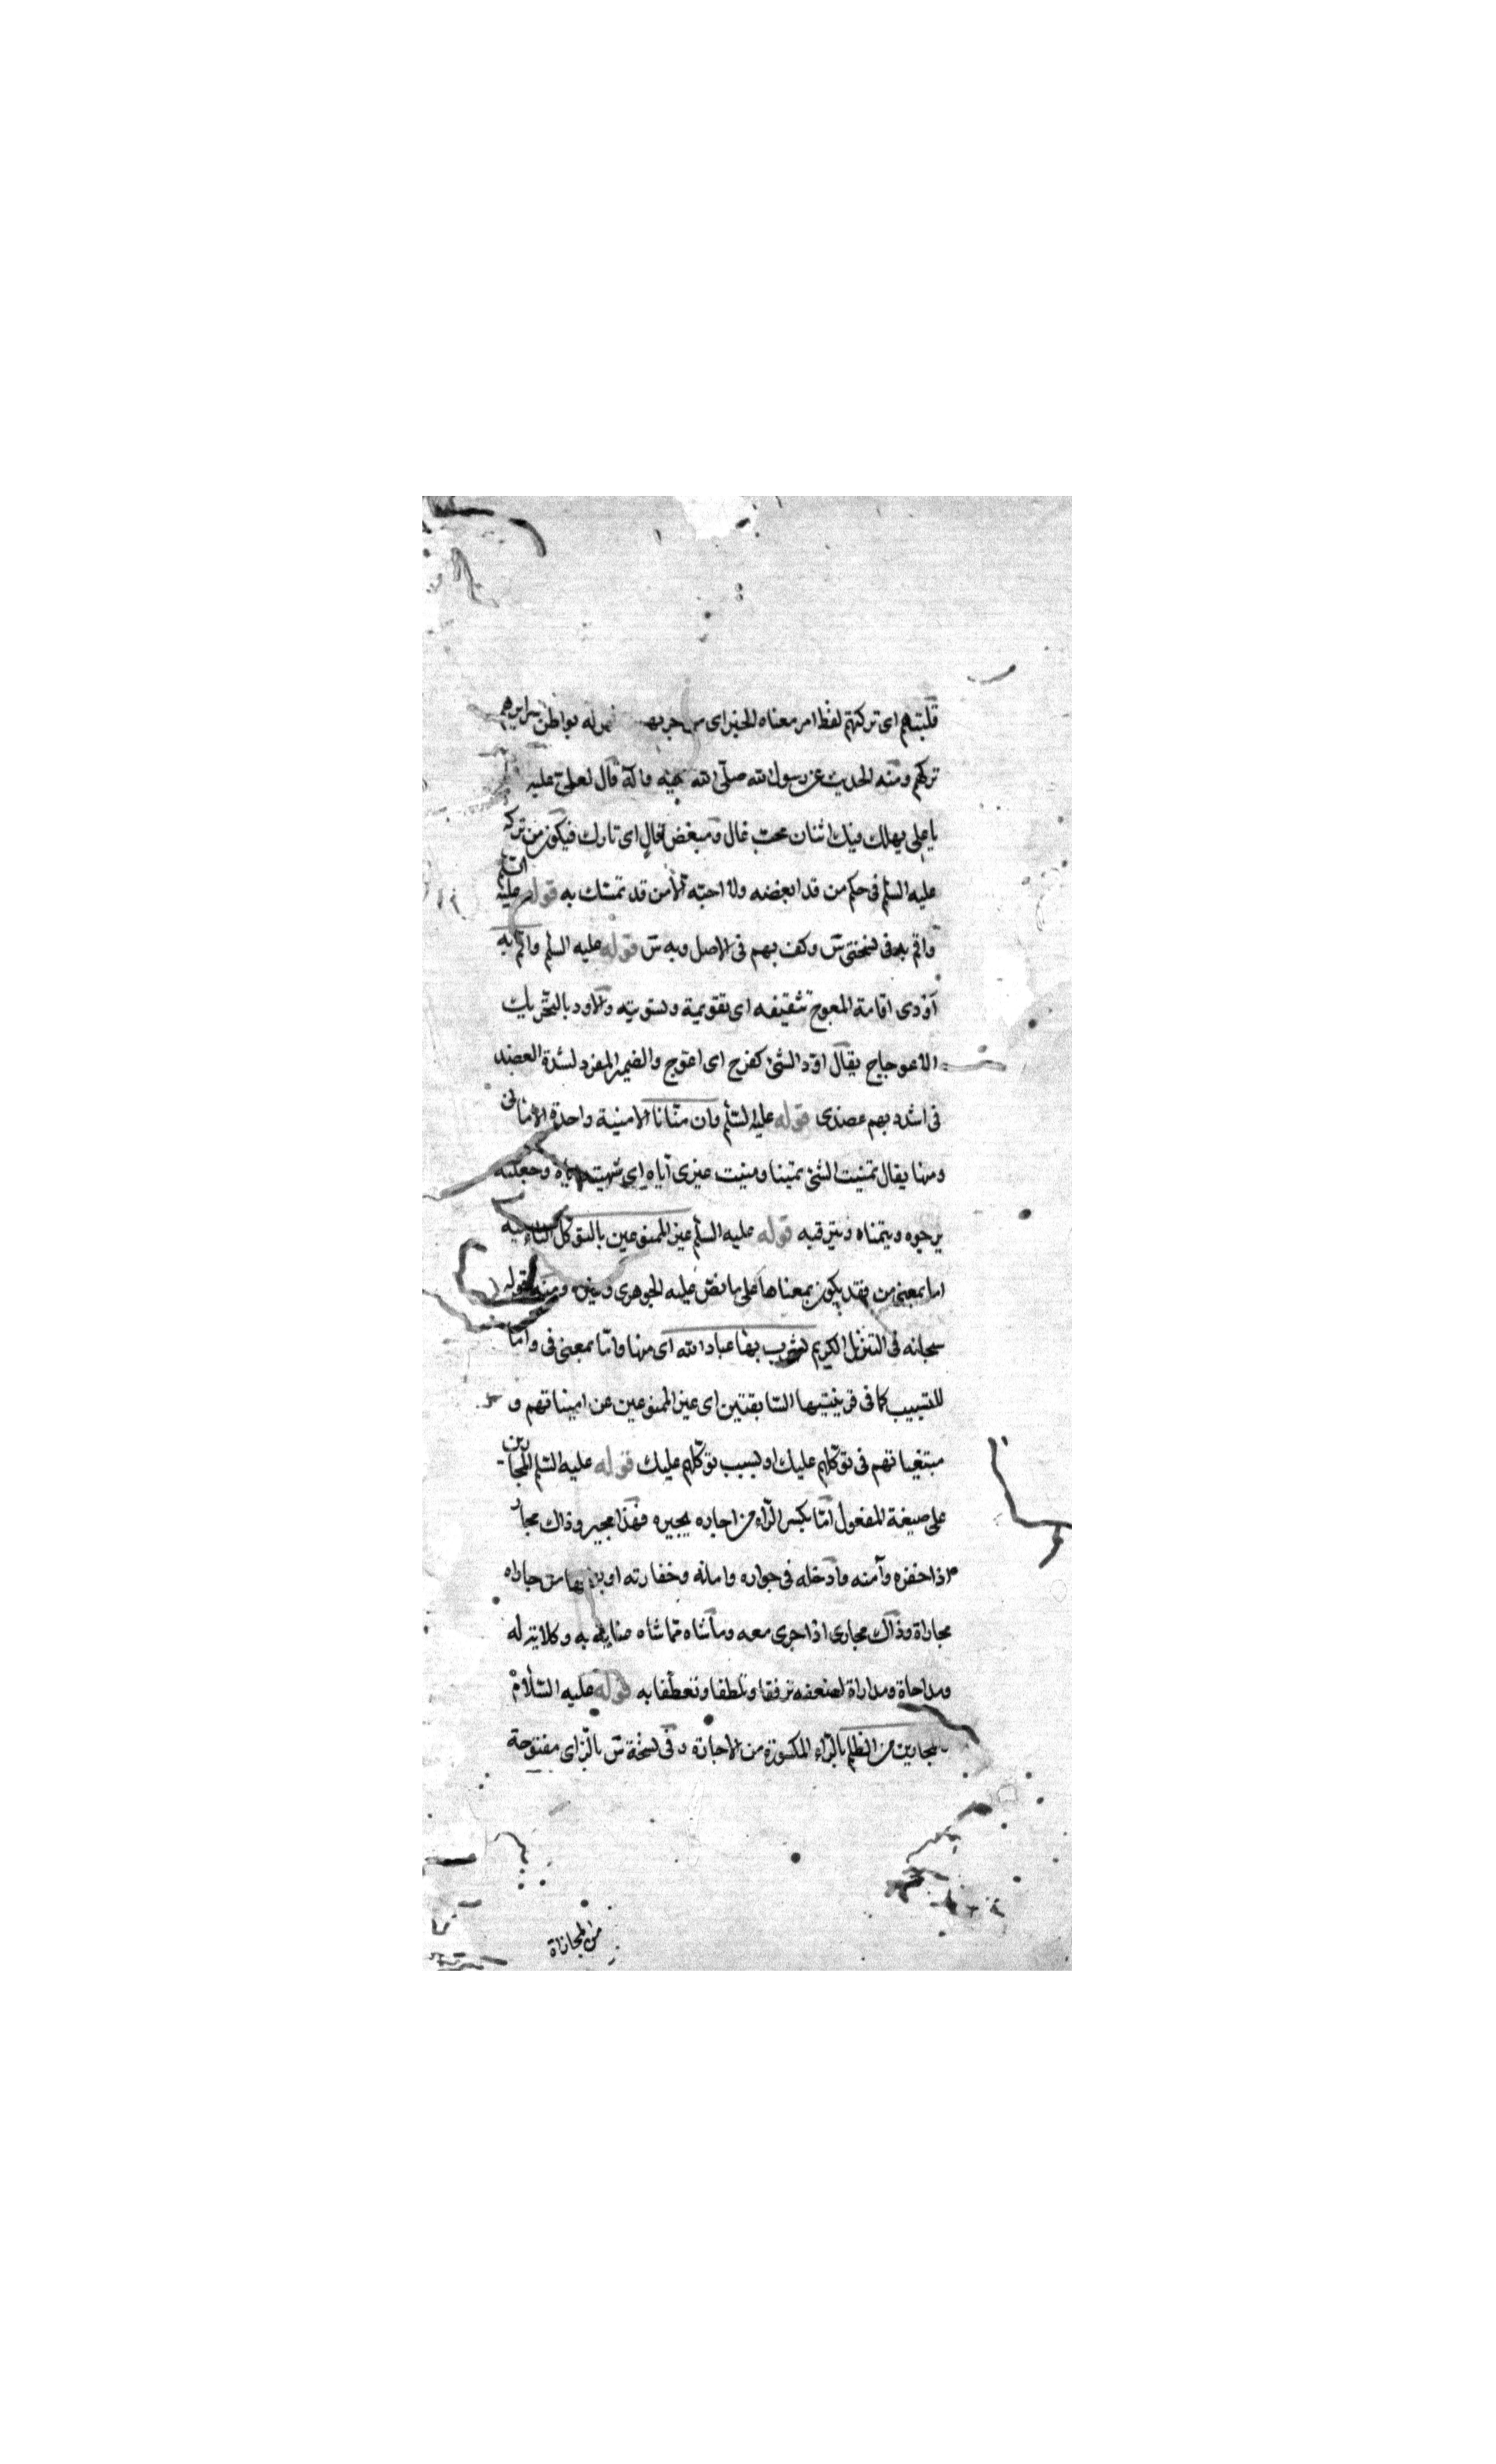 قلبتهم اى تركتهم لفظ امر معناه الخبر اى من جربهم بواطن سرايرهم
تركهم ومنه الحديث عن رسول الله صلّى الله عليه واله قال لعلىّ عليه
يا على يهلك فيك اثنان محبّ غال ومبغض قالٍ اى تارك فيكون من تركه
عليه السلم فى حكم من قد ابغضه ولا احبّه الّا من قد تمسّك به قوله عليه السلم
واقم به فى نسختى س وكف بهم فى الاصل وبه س قوله عليه السلم واقم به
أوَدى اقامة المعوج تثقيفه اى تقويمه وتسويته والاود بالتحريك
الاعوجاج يقال اوِد الشئ كفرح اى اعوج والضمير المفرد لشدة العضد
فى اشدد بهم عضدى قوله عليه السّلم وان منّانا الامنية واحدة الامانى
ومنا يقال تمنيت الشئ تمنيا ومنيت غيرى اياه اى شهيته اياه وجعلته
يرجوه ويتمناه ويترقبه قوله عليه السلم غير الممنوعين بالتوكل الباء فيه
اما بمعنى من فقد يكون بمعناها على ما نصّ عليه الجوهرى وغيره ومنه قوله
سبحانه فى التنزيل الكريم يشرب بها عباد الله اى منها وامّا بمعنى فى وامّا
للتسبيب كما فى قرينتيها السّابقتين اى غير الممنوعين عن امنياتهم و
مبتغياتهم فى توكّلهم عليك او بسبب توكّلهم عليك قوله عليه السّلم المجارين
على صيغة المفعول امّا بكسر الرّاء من اجاره يجيره فهذا مجير وذاك مجار
اذا خفره وآمنه وادخله فى جواره وامانه وخفارته او بفتحها من جاراه
مجاراة وذاك مجارى اذا جرى معه وماشاه مماشاه عناية به وكلاية له
ومداجاة ومداراة لضعفه ترفقا وتلطفا وتعطّفا به قوله عليه السّلام
المجارين من الظلم بالرّاء المكسورة من الاجارة وفى نسخة س بالزّاى مفتوحة
من المجازاة